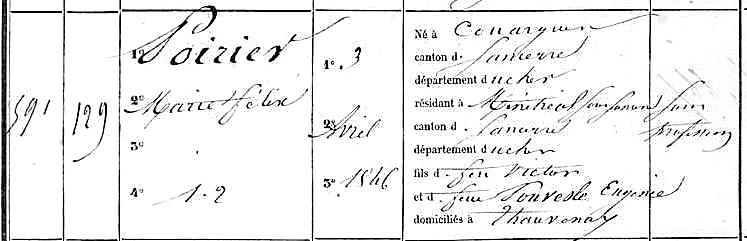 591
129
1º Poirier
2º Marie Félix
3º
4º 1. 2
1º 3
2º Avril
3º 1846
Né à Couargues
canton d. Sancerre
département du cher
résidant à Ménétréol sous Sancerre
canton d. Sancerre
département du cher
fils d. feu Victor
et d. feue Eugénie
domiciliés à Thauvenay
sans
profession